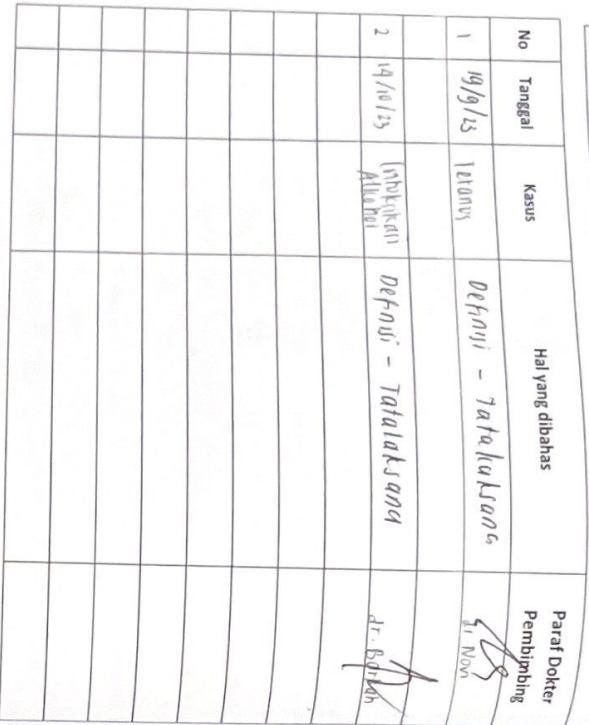 No Tanggal Kasus Hal yang dibahas Paraf Dokter Pembimbing
1 19/9/23 Tetanus Definisi - Tatalaksana dr. Novi
2 14/10/23 Intoksikasi Alkohol Definisi - Tatalaksana dr.